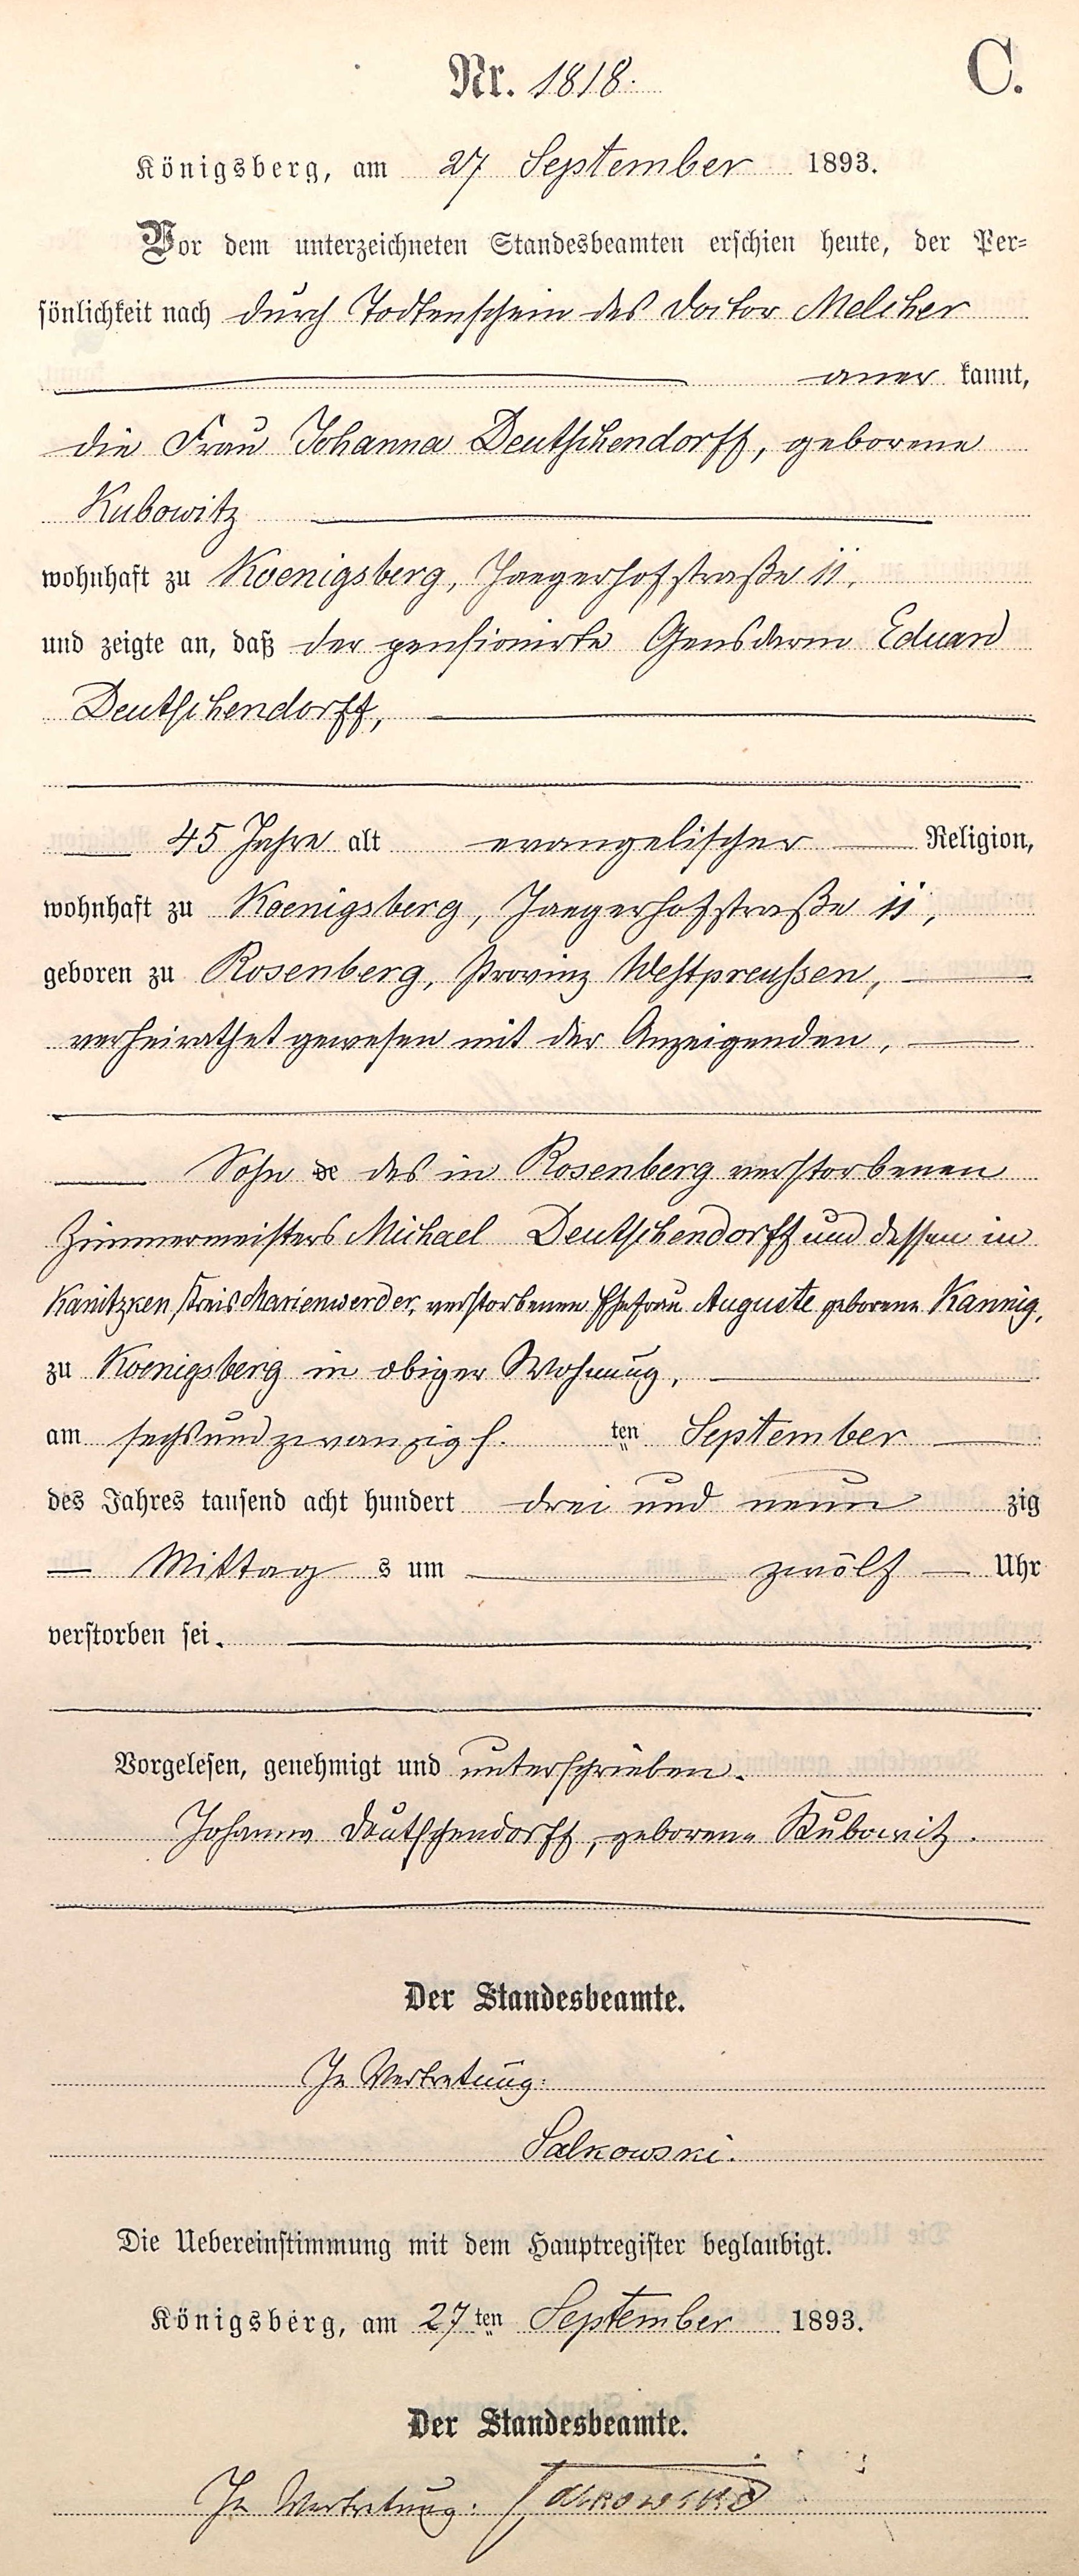 Nr. 1818. C.
Königsberg, am 27 September 1893.
Vor dem unterzeichneten Standesbeamten erschien heute, der Per=
sönlichkeit nach durch Todtenschein des Doctor Melcher
aner kannt,
die Frau Johanna Deutschendorff, geborene
Kubowitz
wohnhaft zu Koenigsberg, Jaegerhofstraße 11,
und zeigte an, daß der pensionirte Gensdarm Eduard
Deutschendorff,
45 Jahre alt evangelischer Religion,
wohnhaft zu Koenigsberg, Jaegerhofstraße 11,
geboren zu Rosenberg, Provinz Westpreußen,
verheirathet gewesen mit der Anzeigenden,
Sohn de des in Rosenberg verstorbenen
Zimmermeisters Michael Deutschendorff und dessen in
Kanitzken, Kreis Marienwerder, verstorbenen Ehefrau Auguste geborene Kannig,
zu Koenigsberg in obiger Wohnung,
am sechsundzwanzigs. ten September
des Jahres tausend acht hundert drei und neun zig
Mittag s um zwölf Uhr
verstorben sei.
Vorgelesen, genehmigt und unterschrieben.
Johanna Deutschendorff, geborene Kubowitz.
Der Standesbeamte.
In Vertretung:
Salkowski.
Die Uebereinstimmung mit dem Hauptregister beglaubigt.
Königsberg, am 27 ten September 1893.
Der Standesbeamte.
In Vertretung: Salkowski